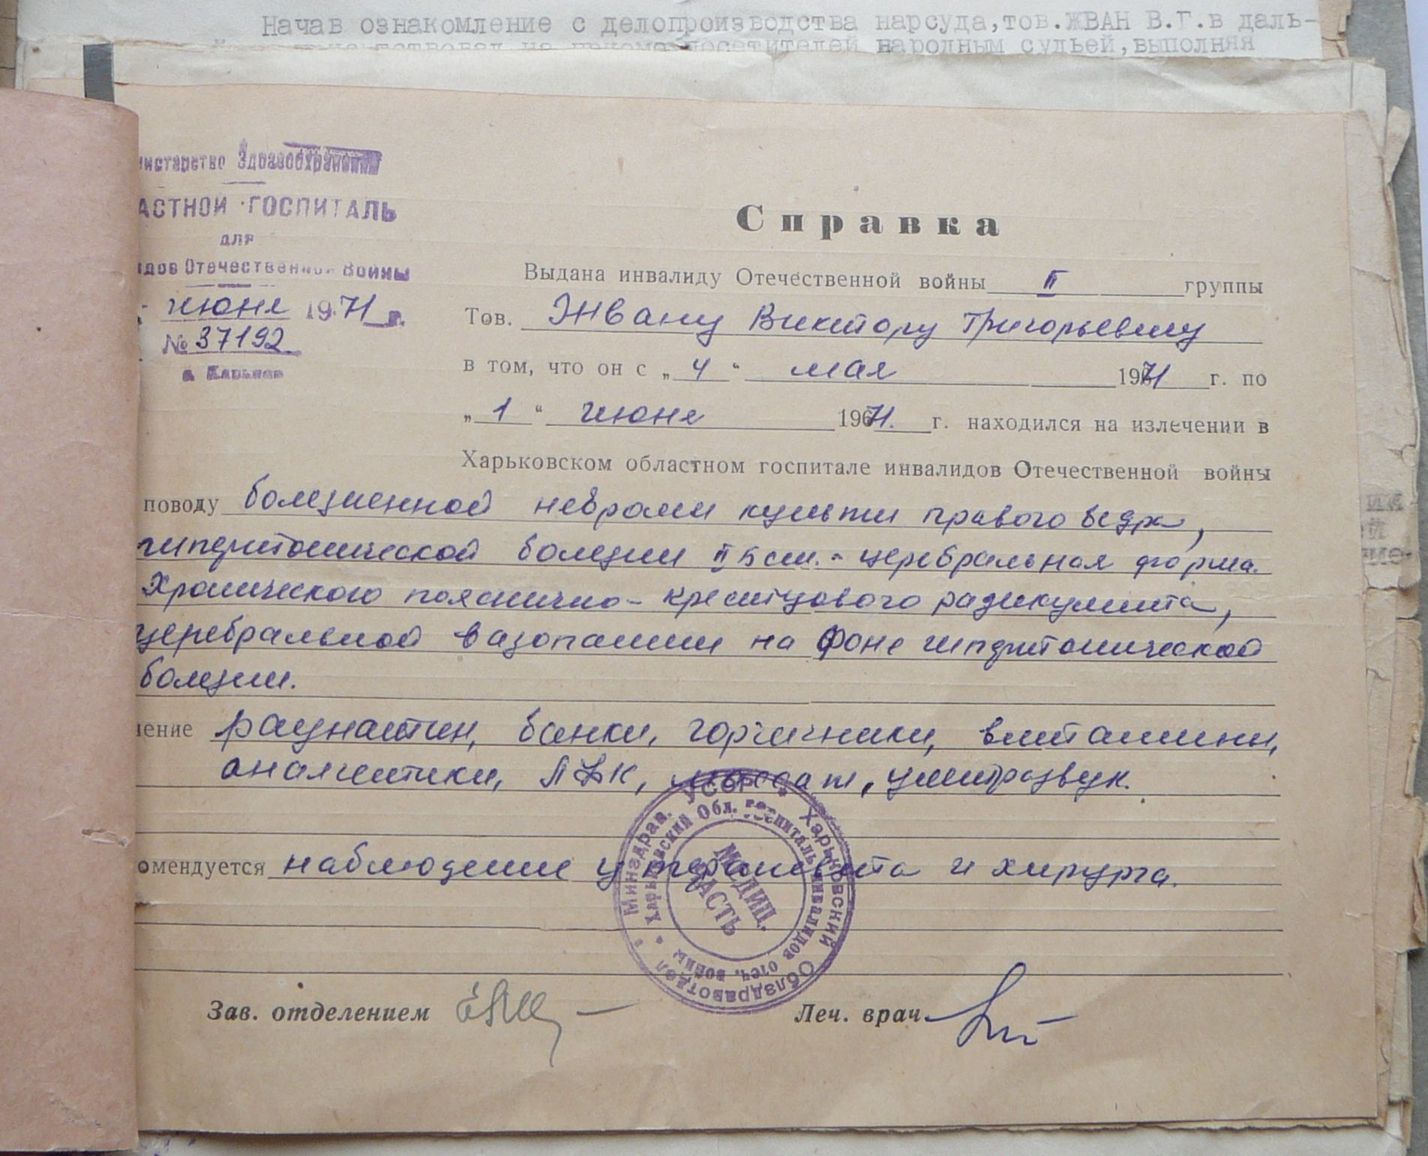 Начав ознакомление с делопроизводства нарсуда,тов.ЖВАН В.Г.в даль-
народным судьей,выполняя
нистерство Здравоохранения
АСТНОЙ ГОСПИТАЛЬ
для
идов Отечественной Войны
июня 1971 г.
№ 37192
г. Харьков
Справка
Выдана инвалиду Отечественной войны II группы
Тов. Жвану Виктору Григорьевичу
в том, что он с „4“ мая 1971 г. по
„1“ июня 1971. г. находился на излечении в
Харьковском областном госпитале инвалидов Отечественной войны
поводу болезненной невромы культи правого бедра,
гипертонической болезни II Б ст. - церебральная форма.
Хронического пояснично-крестцового радикулита,
церебральной вазопатии на фоне гипертонической
болезни.
чение раунатин, банки, горчичники, витамины,
аналгетики, ЛФК, массаж, ультразвук.
омендуется наблюдение у терапевта и хирурга.
Минздрав. УССР * Харьковский Облздравотдел *
Харьковский Обл. госпиталь инвалидов отеч. войны *
МЕДИЦ.
ЧАСТЬ
Зав. отделением
Леч. врач